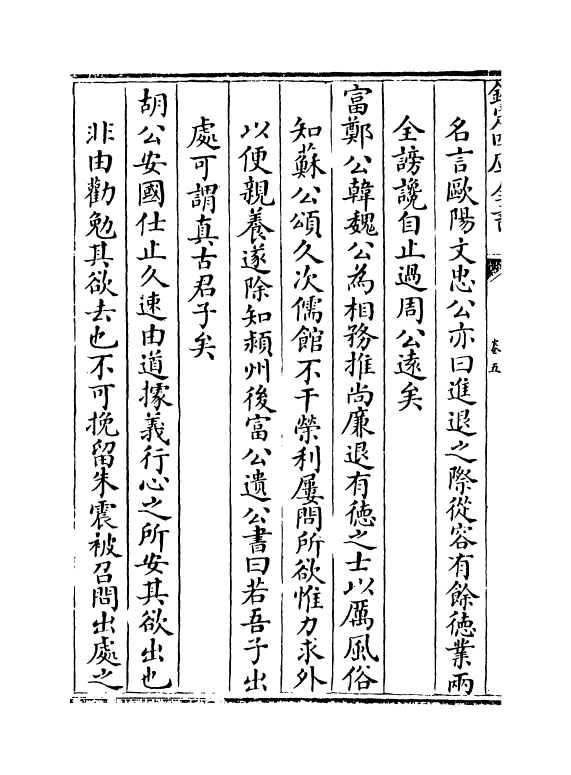 欽定四庫全書
卷五
名言歐陽文忠公亦曰進退之際從容有餘德業兩
全謗讒自止過周公遠矣
富鄭公韓魏公為相務推尚廉退有德之士以厲風俗
知蘇公頌久次儒館不干榮利屢問所欲惟力求外
以便親養遂除知潁州後富公遺公書曰若吾子出
處可謂真古君子矣
胡公安國仕止久速由道據義行心之所安其欲出也
非由勸勉其欲去也不可挽留朱震被召問出處之